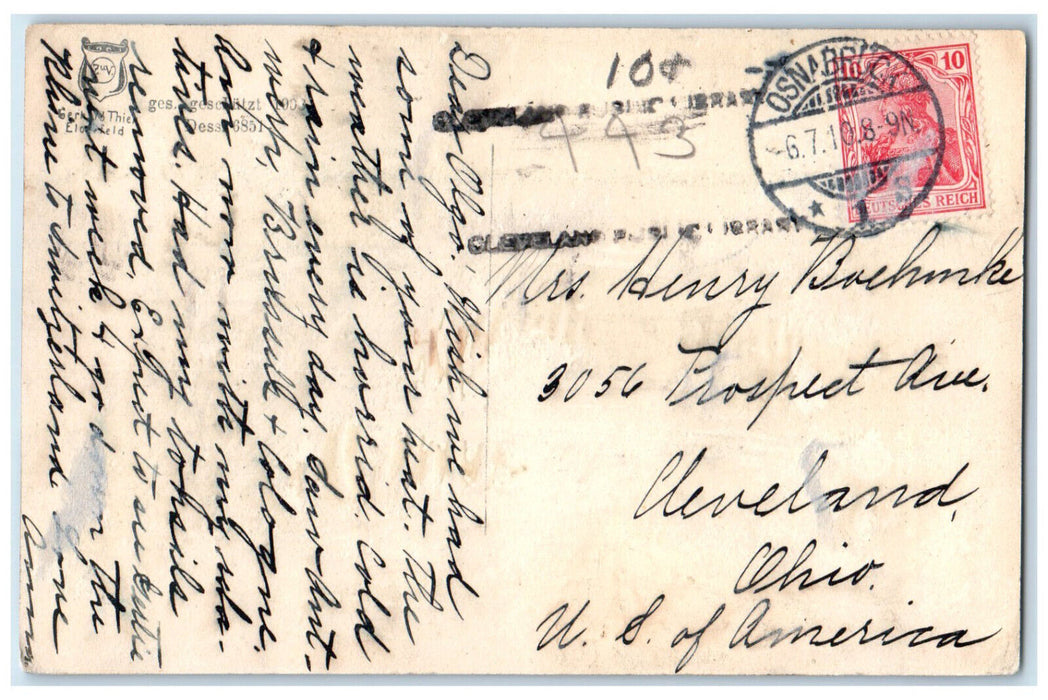 Gerhard Thien
Elberfeld
ges. geschützt 1903
Dess. 6851
104
443
CLEVELAND PUBLIC LIBRARY
CLEVELAND PUBLIC LIBRARY
OSNABRÜCK
6.7.10.8-9N.
10
10
DEUTSCHES REICH
Dear Olga, Wish we had
some of your heat. The
weather is horrid. Cold
& rain every day. Saw Ant-
werp, Brussels & Cologne.
Am now with my rela-
tives. Had my tonsils
removed. Expect to
next week & down the
Rhine to Switzerland
Mrs. Henry Boehmke
3056 Prospect Ave.
Cleveland,
Ohio.
U. S. of America